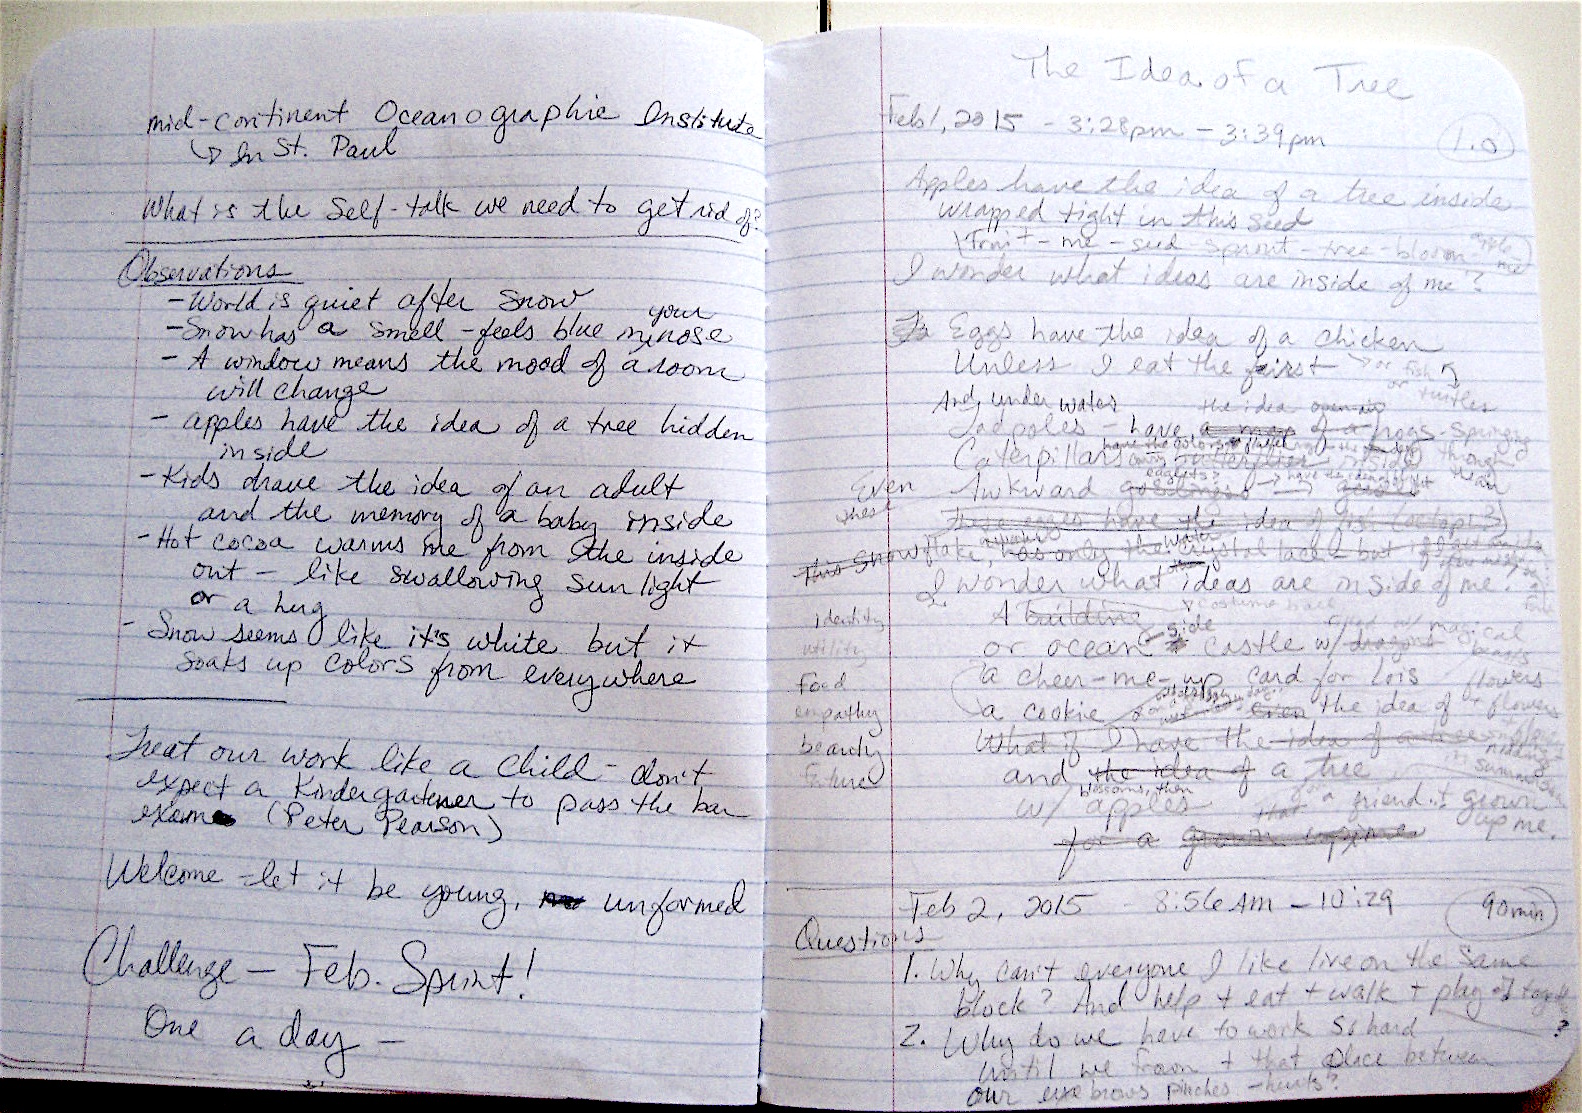 mid-continent Oceanographic Institute
↳ In St. Paul
What is the Self-talk we need to get rid of?
Observations
- World is quiet after snow
- Snow has a smell - feels blue in your nose
- A window means the mood of a room
will change
- apples have the idea of a tree hidden
inside
- Kids have the idea of an adult
and the memory of a baby inside
- Hot cocoa warms me from the inside
out - like swallowing sunlight
or a hug
- Snow seems like it's white but it
soaks up colors from everywhere
Treat our work like a child - don't
expect a Kindergartener to pass the bar
exam (Peter Pearson)
Welcome - let it be young, unformed
Challenge - Feb. Sprint!
One a day -
The Idea of a Tree
Feb 1, 2015 - 3:28pm - 3:39pm
1.0
Apples have the idea of a tree inside
wrapped tight in this seed
- me - seed - sprout - tree - blossom - apple
I wonder what ideas are inside of me?
Eggs have the idea of a chicken
Unless I eat the first → or fish
or turtles
And, under water the idea
Tadpoles - have of a frogs springing
Caterpillars
Even Awkward
This Snowflake, has only the crystal
I wonder what ideas are inside of me.
A building costume
identity
or ocean-side castle w/ dragons magical
beasts
utility
a cheer-me-up card for Lois flowers
Food
a cookie even the idea of + flowers
empathy
What if I have the idea of a tree
beauty
and the idea of a tree
future
blossoms, then
w/ apples a friend grown
up me.
for a
Feb 2, 2015 8:56 AM - 10:29 90 min
Questions
1. Why can't everyone I like live on the same
block? And help + eat + walk + play
2. Why do we have to work so hard
until we frown + that place between
our eyebrows pinches - hurts?